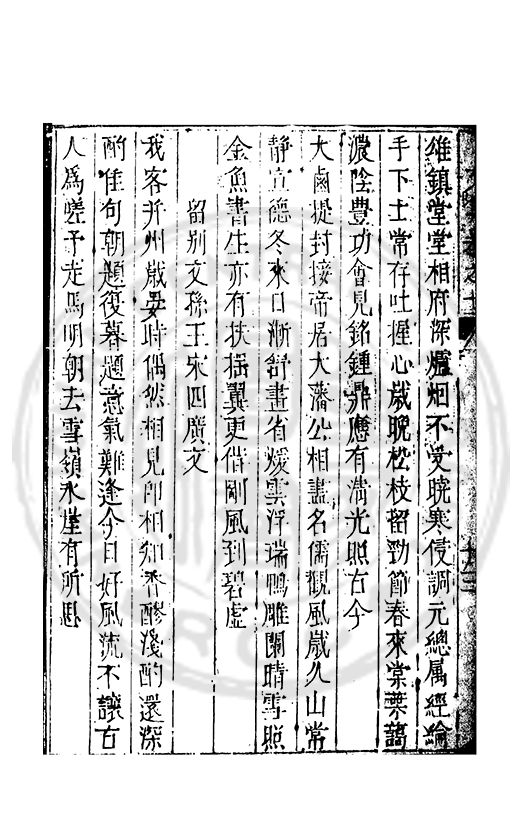 雄鎮堂堂相府深爐烟不受曉寒侵調元總属經綸
手下士常存吐握心歲晚松枝留勁節春來棠葉藹
濃陰豐功會見銘鍾鼎應有淸光照古今
大鹵提封接帝居大藩公相盡名儒觀風歲久山常
靜宣德冬來日漸舒晝省煖雲浮瑞鴨雕闌晴雪照
金魚書生亦有扶摇翼更借剛風到碧虛
留别文孫王宋四廣文
我客并州歲晏時偶然相見即相知香醪淺酌還深
酌佳句朝題復暮題意氣難逢今日好風流不讓古
人爲嗟予走馬明朝去雪嶺氷崖有所思